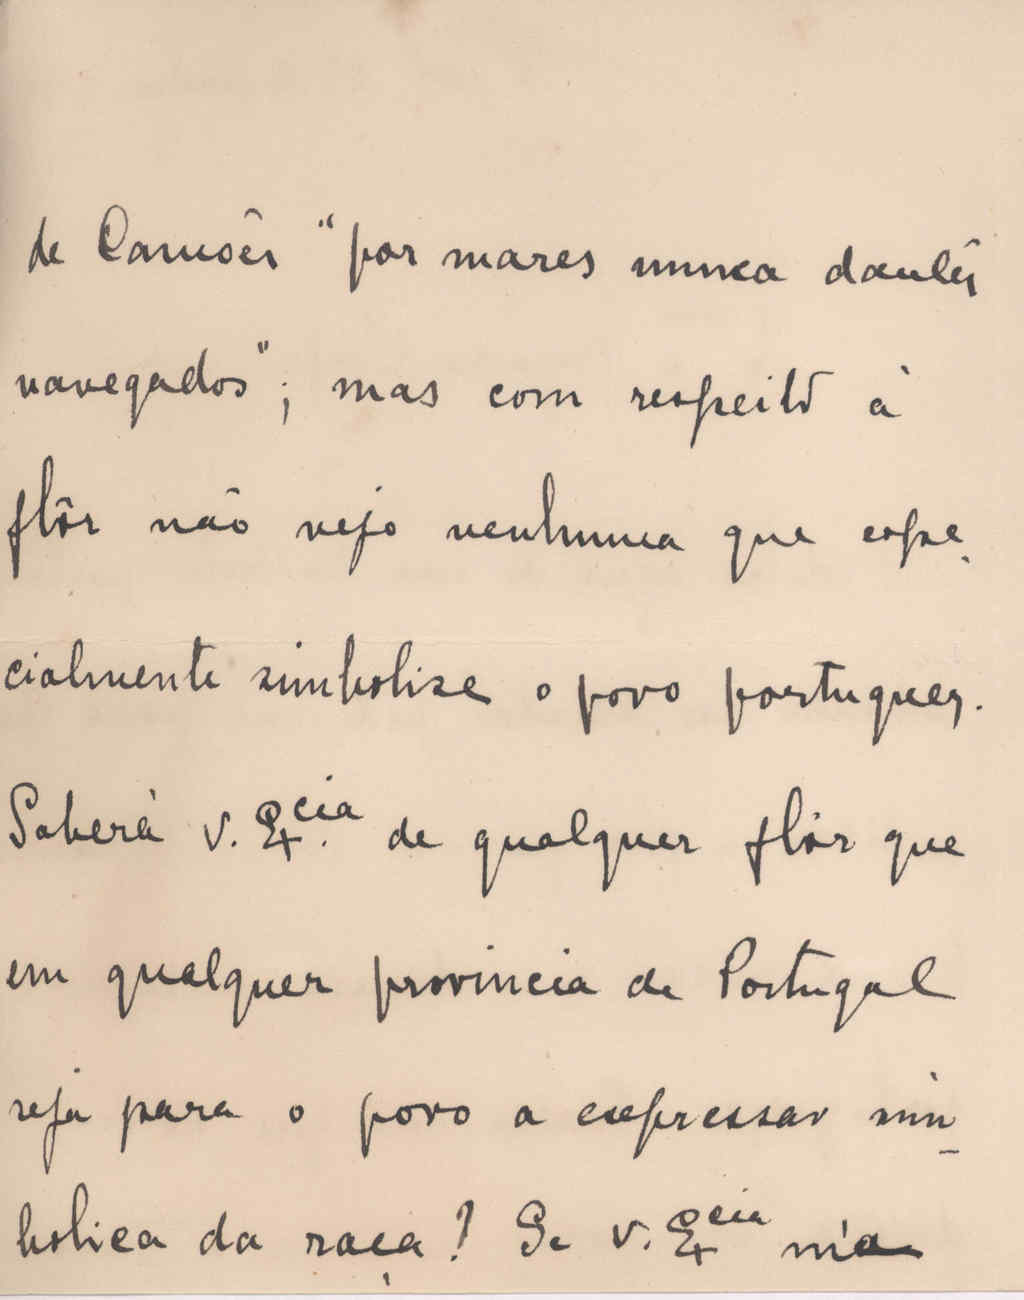 de Camões "por mares nunca dantes
navegados"; mas com respeito à
flôr não vejo nenhuma que espe-
cialmente simbolise o povo portuguez.
Saberá V. Ex.cia de qualquer flôr que
em qualquer provincia de Portugal
seja para o povo a expressão sim-
bolica da raça? Se V. Ex.cia